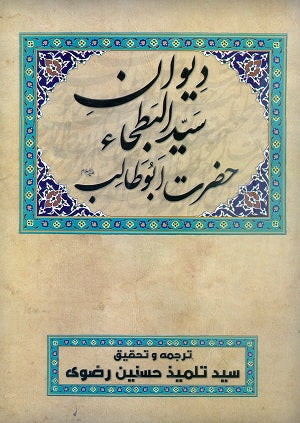 دیوانِ
سیّد البَطحَاء
حضرت اَبُوطالِب علیہ السلام
ترجمه و تحقیق
سید تلمیذ حسنین رضوی